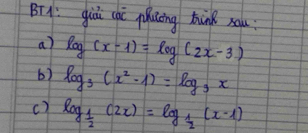 BT1: giải các phương trình sau:
a) log (x - 1) = log (2x - 3)
b) log₃ (x² - 1) = log₃ x
c) log_{1/2} (2x) = log_{1/2} (x - 1)